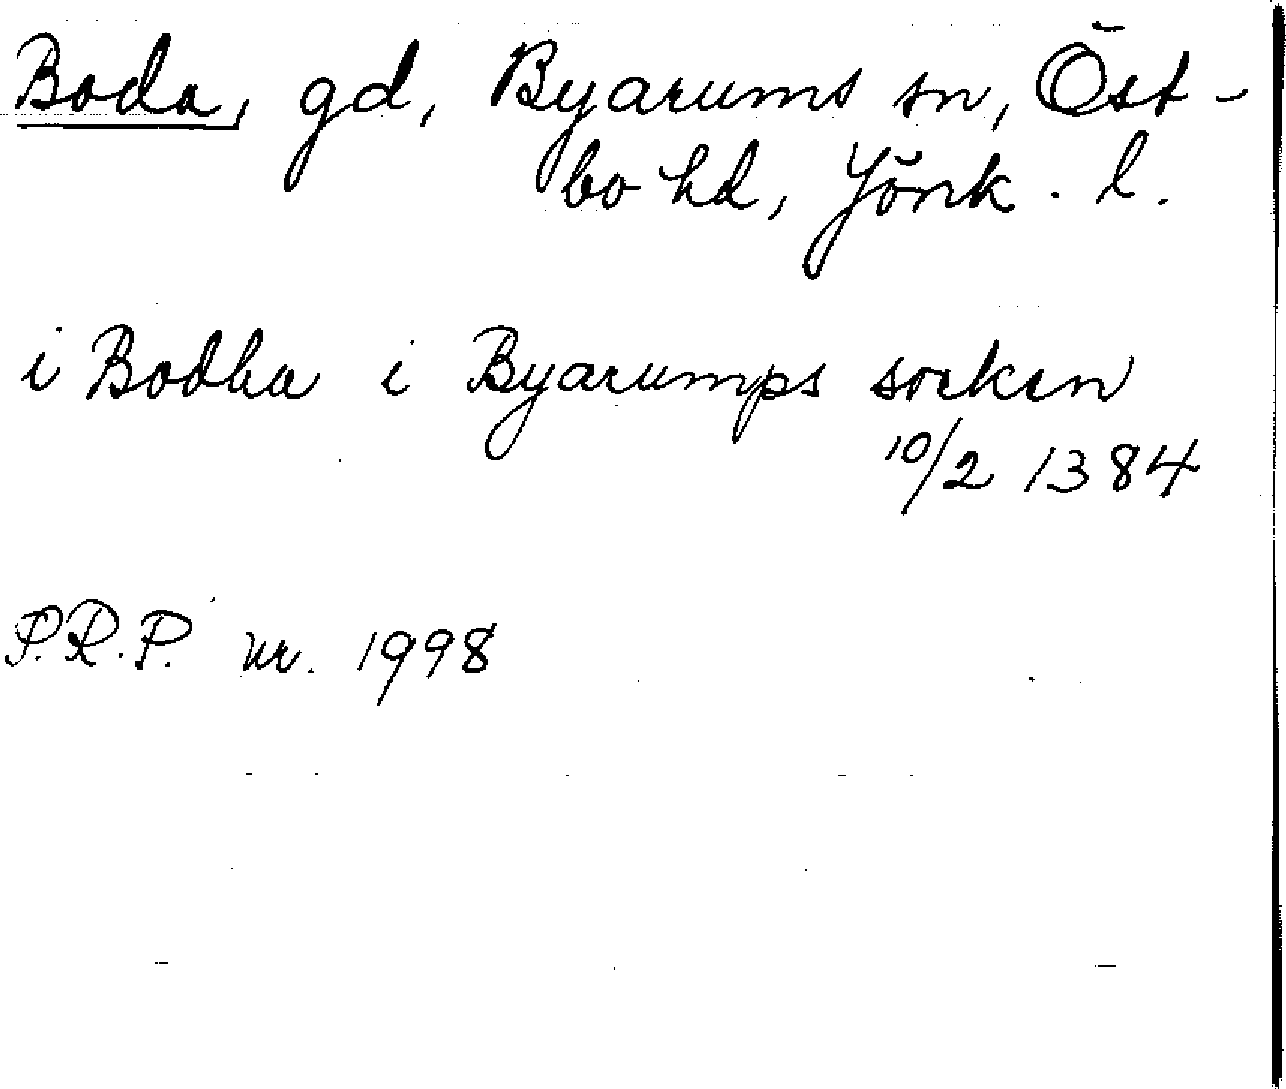 Boda, gd, Byarums sn, Öst-
bo hd, Jönk. l.
i Bodha i Byarumps sokn
10/2 1384
P.R.P. nr. 1998